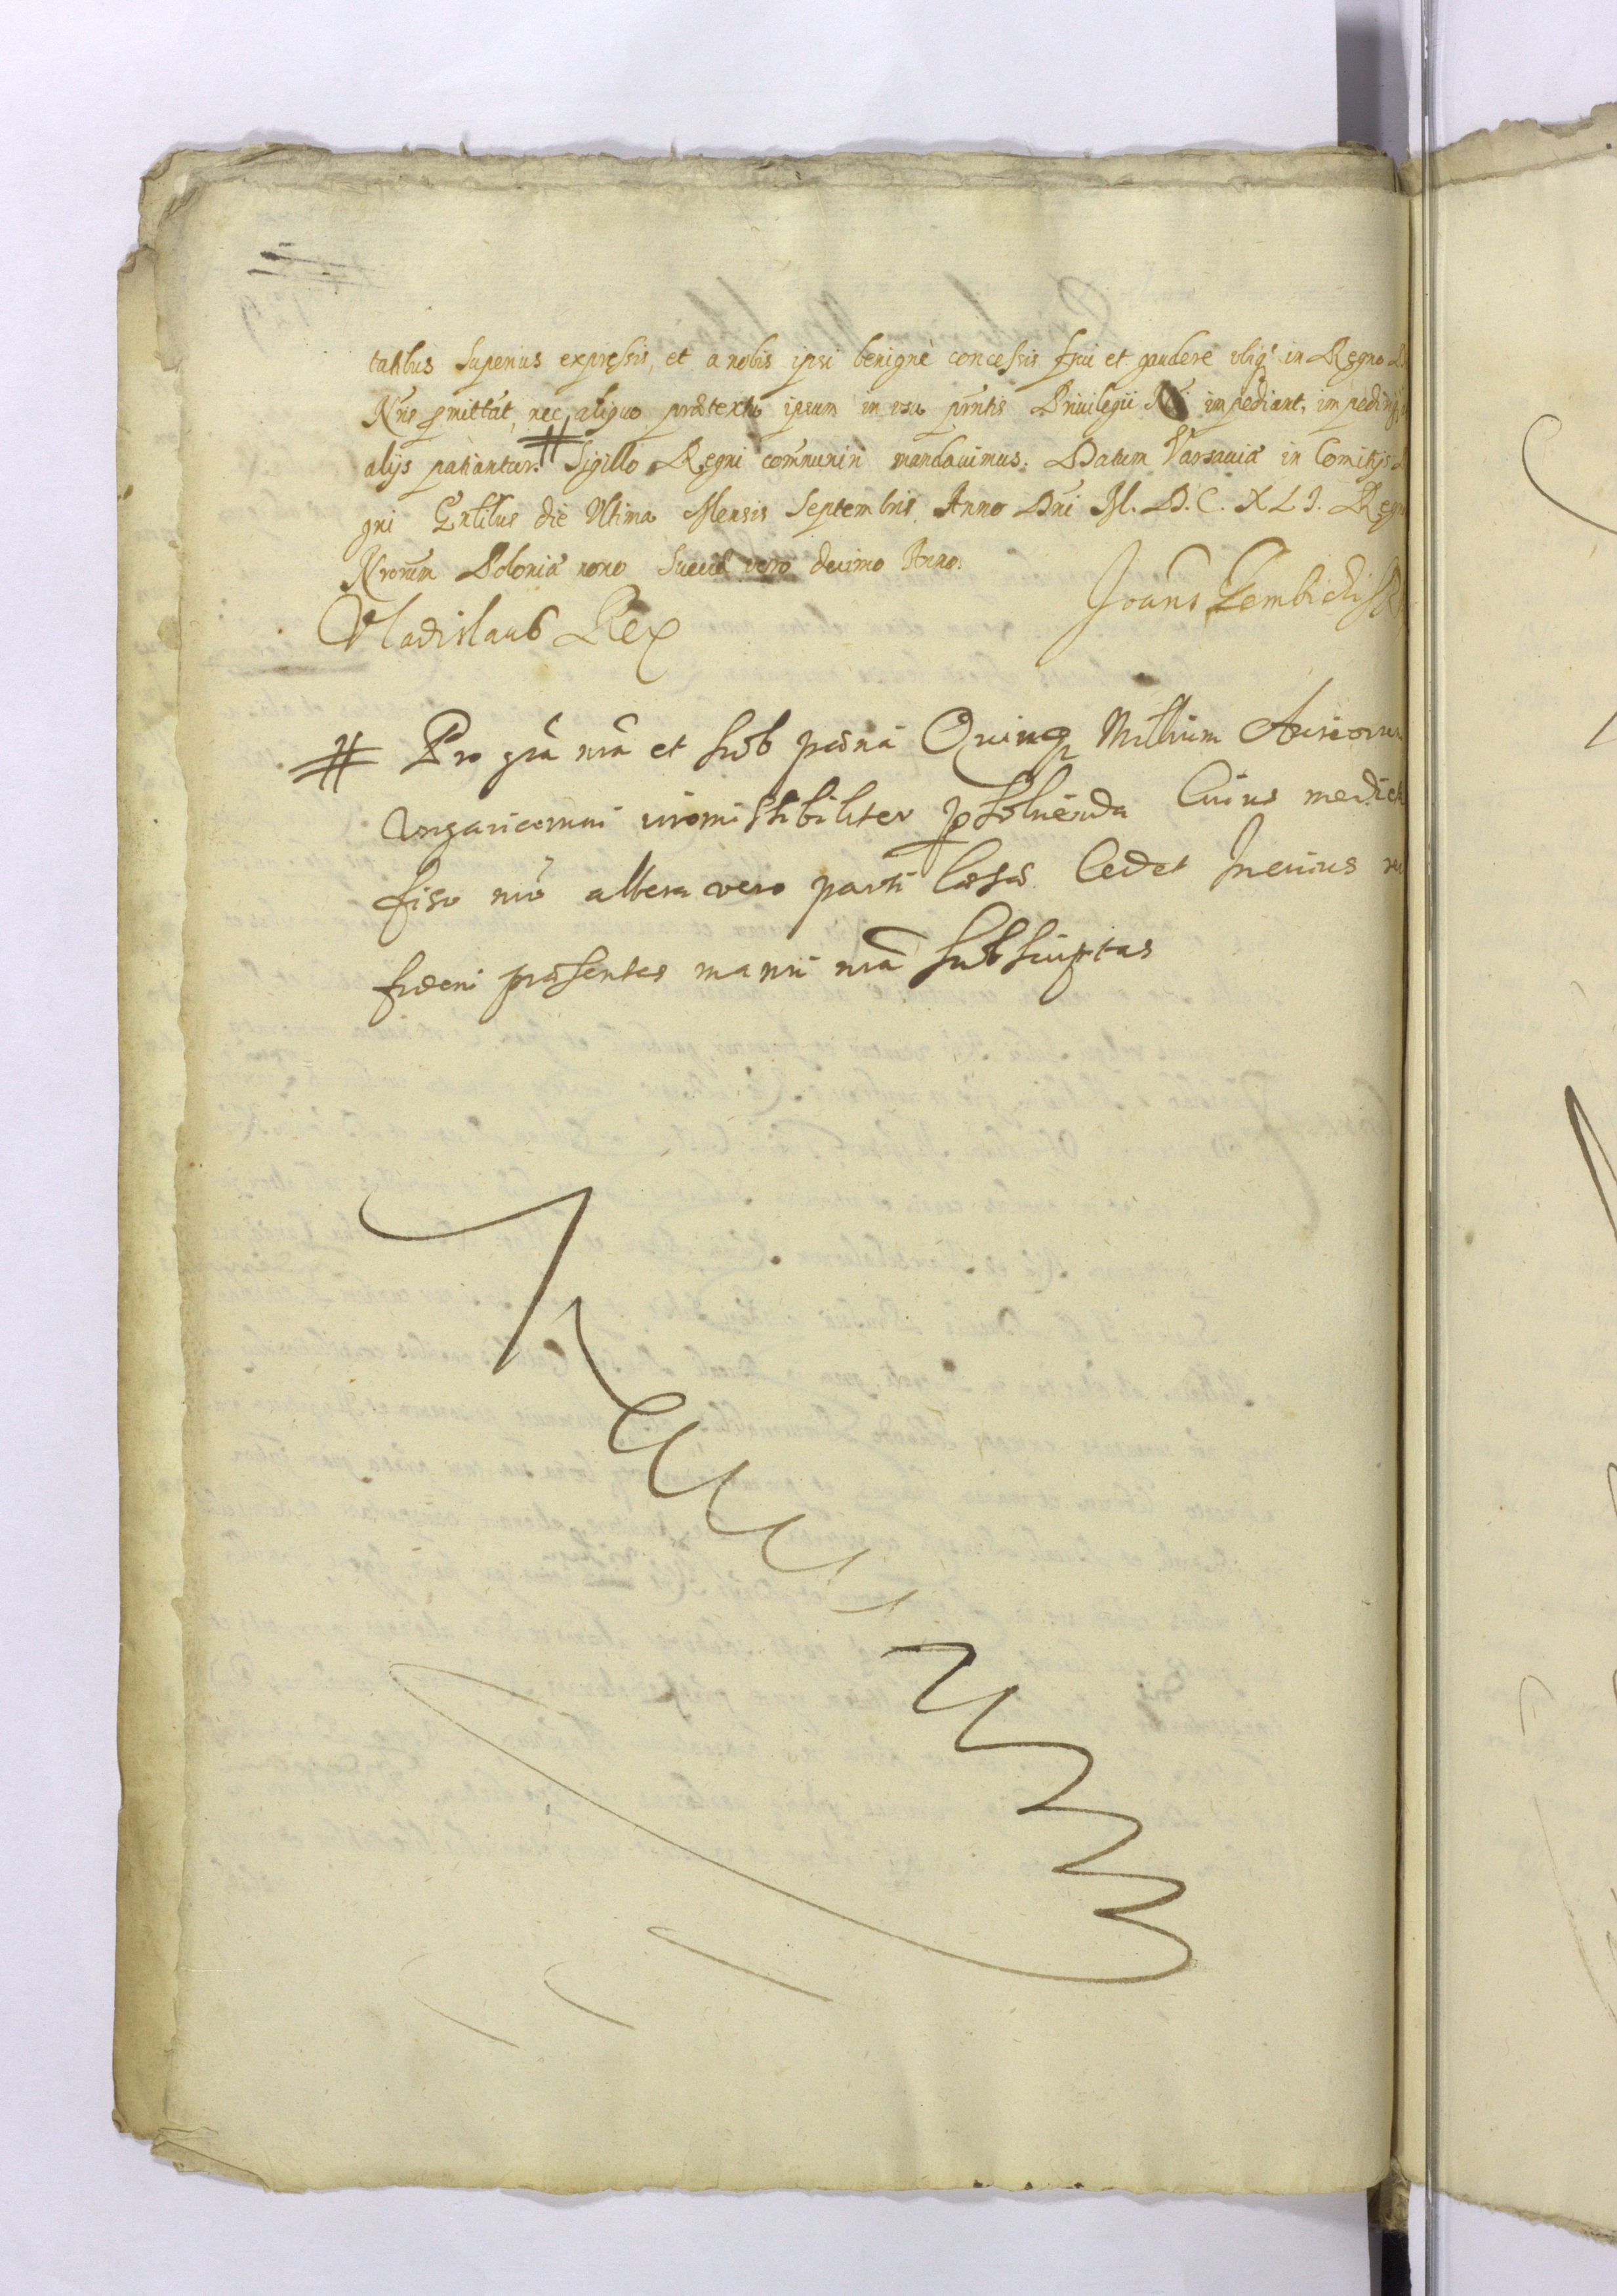 tatibus superius expressis, et a nobis ipsi benignè concessis frui et gaudere vbiq in Regno
Nrũs pmittãt, nec aliquo prætextu ipsum in vsu prñtis Priuilegii Nri impediant, impediriq
alijs patiantur. # Sigillo Regni communiri mandauimus. Datum Varsauiæ in Comitijs
gni Gnłibus die Vltima Mensis Septembris Anno Dñi M. D. C. XLI. Regn
Nrorum Poloniæ nono Sueciæ vero decimo Anno.
Vladislaus Rex
Joañs Gembicki
# Pro grã nrã et sub pœna Quinq Millium Aureorum
Vngaricorum irremissibiliter psoluenda Cuius mediet
fisco nrõ altera vero parti læsæ Cedet In cuius
fidem præsentes manu nrã subscriptas